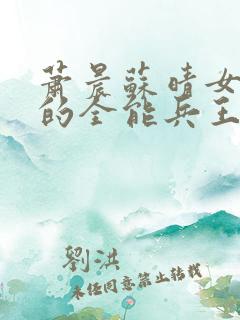 蕭晨蘇晴女
的全能兵王
劉洪
未经同意禁止转载